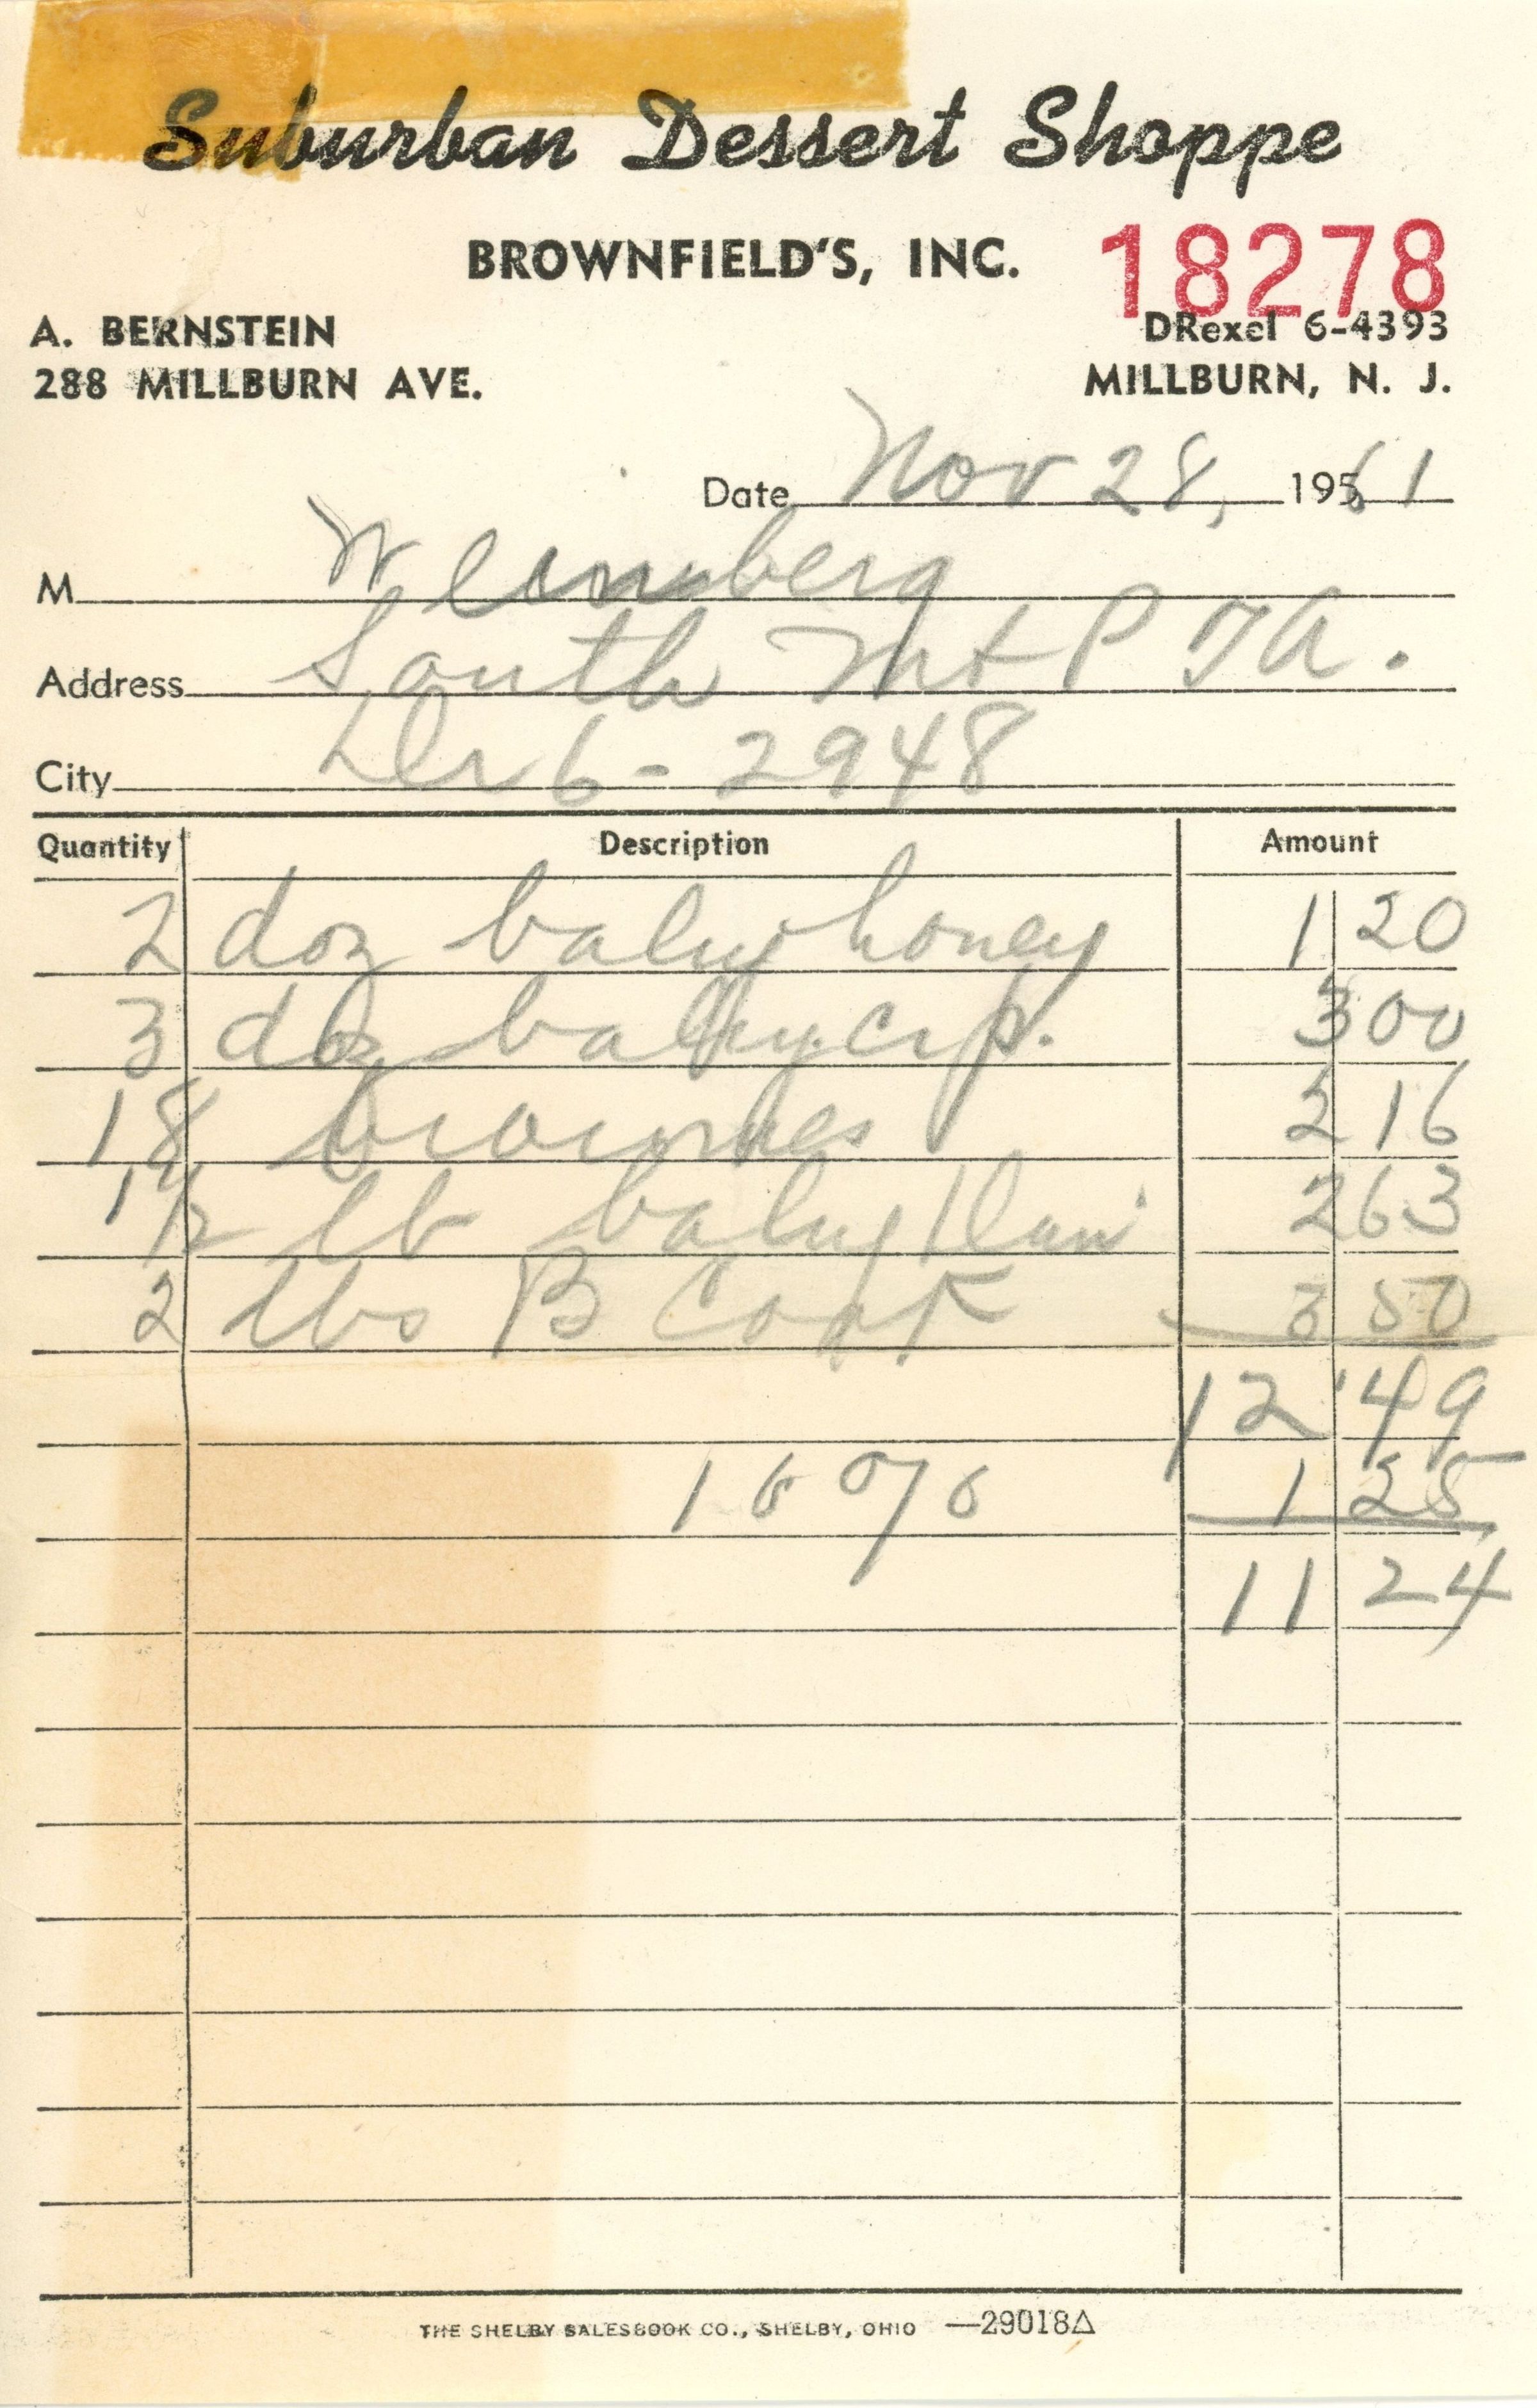 Suburban Dessert Shoppe
BROWNFIELD'S, INC.
18278
A. BERNSTEIN
DRexel 6-4393
288 MILLBURN AVE.
MILLBURN, N. J.
Date Nov 28, 1961
M Weinberg
Address South Mt PTA.
City Dr 6-2948
Quantity Description Amount
2 doz baby honey 1 20
3 doz baby cp. 3 00
18 brownies 2 16
1 1/2 lb baby Dan 2 63
2 lbs B Cook 3 50
12 49
10 % 1 25
11 24
THE SHELBY SALESBOOK CO., SHELBY, OHIO —29018△